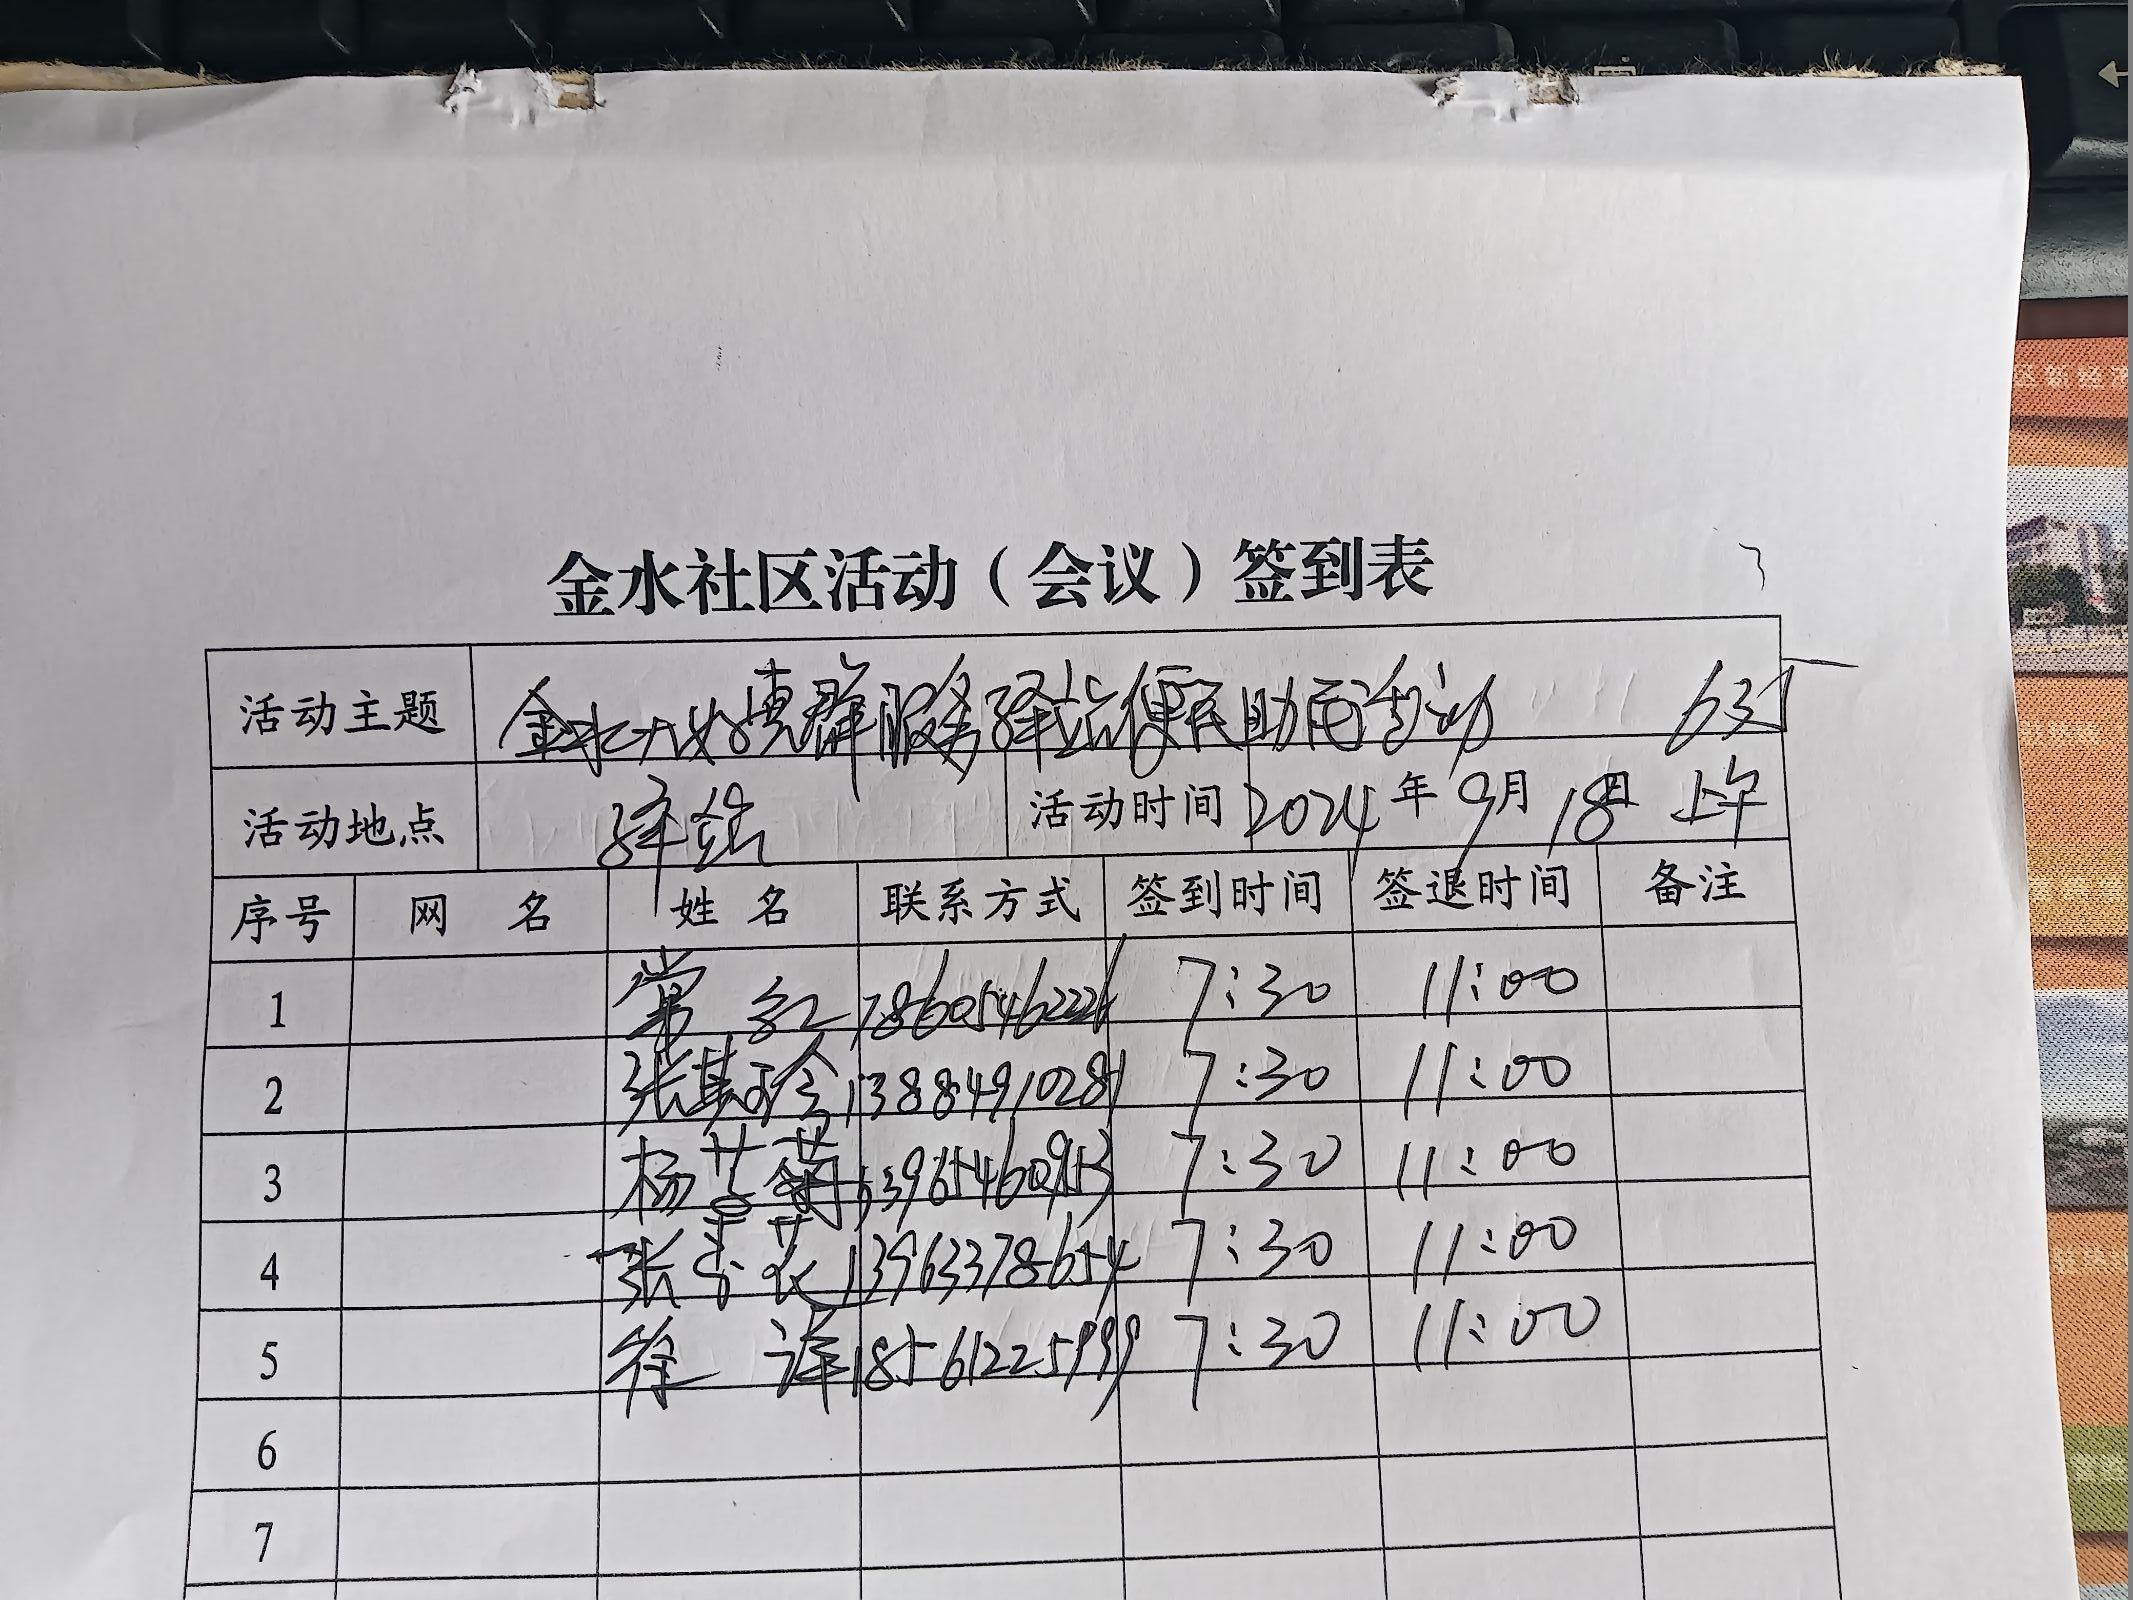 金水社区活动（会议）签到表
活动主题 金水 群服务驿站便民助民活动
活动地点 驿站 活动时间 2024年9月18日 上午
序号 网 名 姓 名 联系方式 签到时间 签退时间 备注
1 常红 17860546222 7:30 11:00
2 张其珍 13884910281 7:30 11:00
3 杨菊 13965460953 7:30 11:00
4 张秀花 13963378654 7:30 11:00
5 徐洋 18561225999 7:30 11:00
6
7